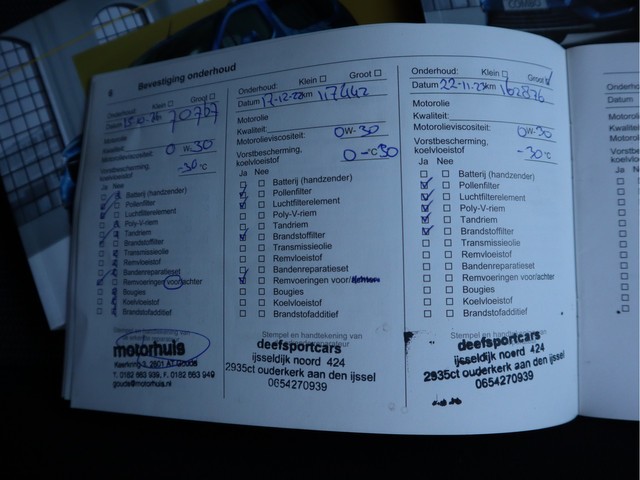 COMBO
8 Bevestiging onderhoud
Onderhoud: Klein Groot
Datum km 70707
Motorolie
Kwaliteit:
Motorolieviscositeit: 0 W-30
Vorstbescherming,
koelvloeistof -30 °C
Ja Nee
Batterij (handzender)
Pollenfilter
Luchtfilterelement
Poly-V-riem
Tandriem
Brandstoffilter
Transmissieolie
Remvloeistof
Bandenreparatieset
Remvoeringen voor/achter
Bougies
Koelvloeistof
Brandstofadditief
motorhuis
T. 0182 683 939, F. 0182 683 949
gouda@motorhuis.nl
Onderhoud: Klein Groot
Datum 17-12-22 km 117442
Motorolie
Kwaliteit:
Motorolieviscositeit: 0W-30
Vorstbescherming,
koelvloeistof 0 -°C 30
Ja Nee
Batterij (handzender)
Pollenfilter
Luchtfilterelement
Poly-V-riem
Tandriem
Brandstoffilter
Transmissieolie
Remvloeistof
Bandenreparatieset
Remvoeringen voor/
Bougies
Koelvloeistof
Brandstofadditief
Stempel en handtekening van
deefsportcars
ijsseldijk noord 424
2935ct ouderkerk aan den ijssel
0654270939
Onderhoud: Klein Groot
Datum 22-11-23 km 162876
Motorolie
Kwaliteit:
Motorolieviscositeit: 0W-30
Vorstbescherming,
koelvloeistof -30 °C
Ja Nee
Batterij (handzender)
Pollenfilter
Luchtfilterelement
Poly-V-riem
Tandriem
Brandstoffilter
Transmissieolie
Remvloeistof
Bandenreparatieset
Remvoeringen voor/achter
Bougies
Koelvloeistof
Brandstofadditief
Stempel en handtekening van
deefsportcars
ijsseldijk noord 424
2935ct ouderkerk aan den ijssel
0654270939
Onderho
Datum
Motoro
Kwalite
Motoro
Vorstb
koelvlo
Ja N